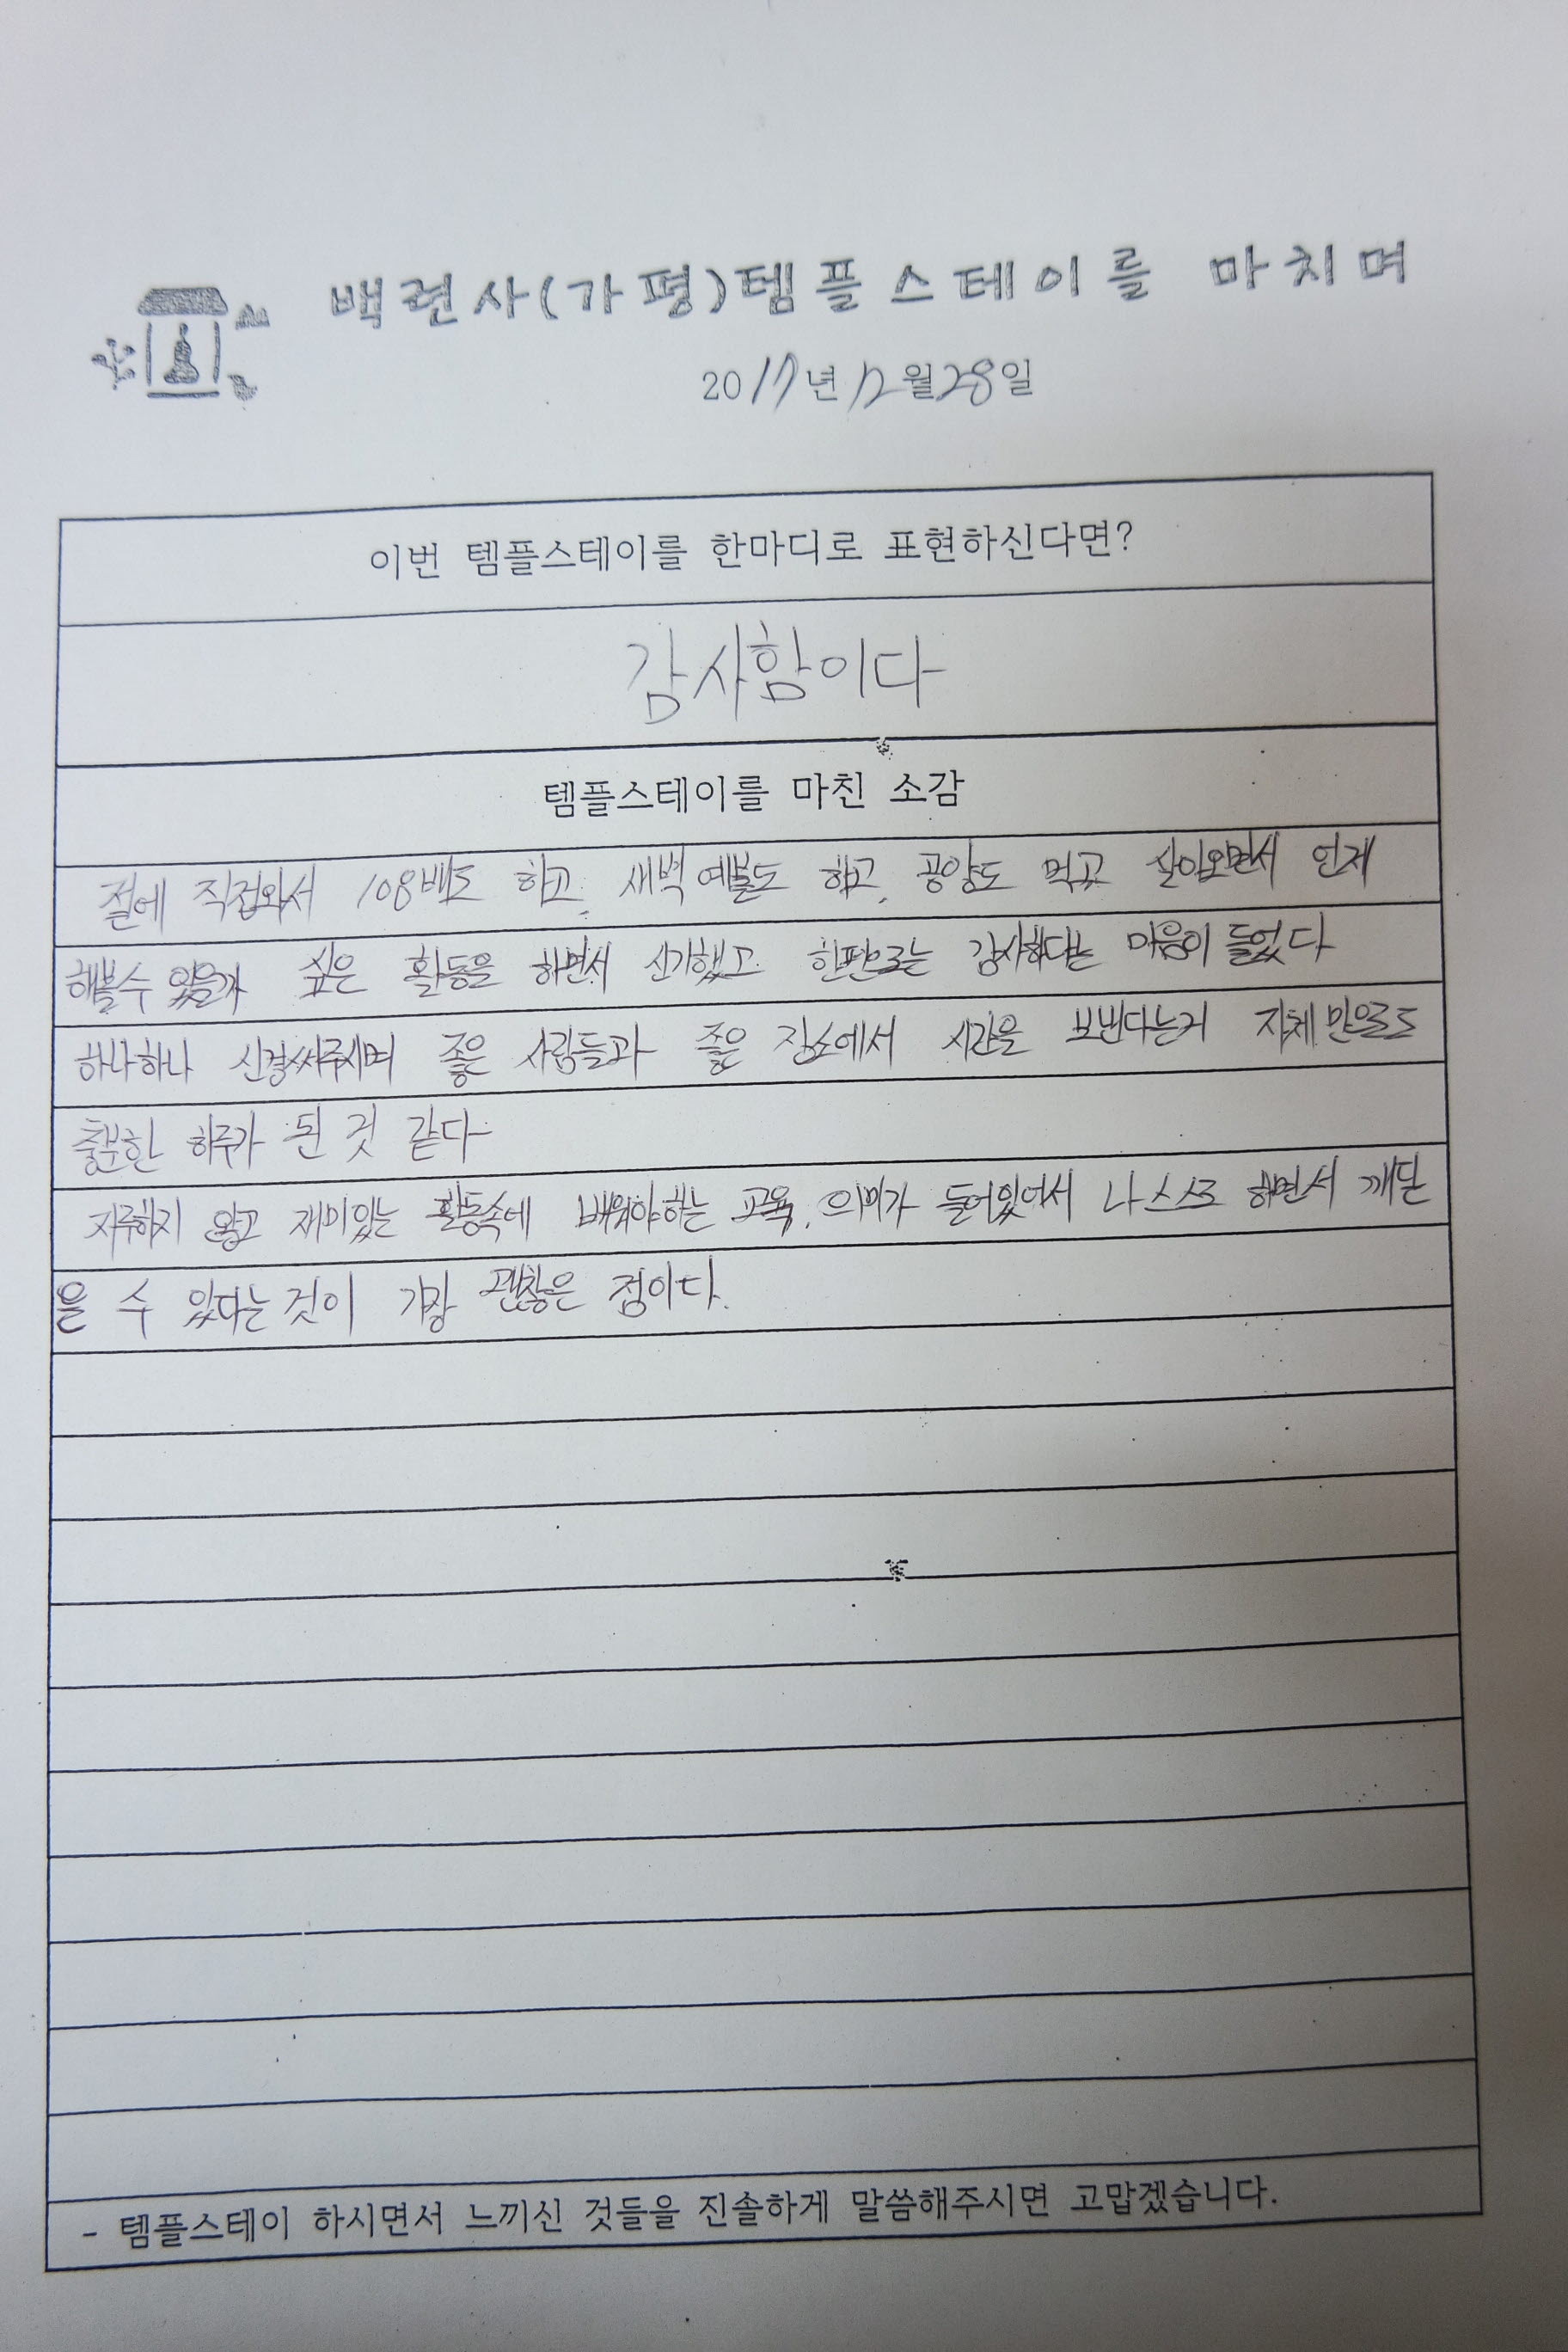 백련사(가평)템플스테이를 마치며
2017년 12월 28일
이번 템플스테이를 한마디로 표현하신다면?
감사함이다
템플스테이를 마친 소감
절에 직접와서 108배도 하고, 새벽예불도 하고, 공양도 먹고 살아오면서 언제
해볼수 있을까 싶은 활동을 하면서 신기했고 한편으로는 감사하다는 마음이 들었다
하나하나 신경써주시며 좋은 사람들과 좋은 장소에서 시간을 보낸다는거 자체만으로도
충분한 하루가 된 것 같다
지루하지 않고 재미있는 활동속에 배워야하는 교육, 의미가 들어있어서 나 스스로 하면서 깨달
을 수 있다는 것이 가장 괜찮은 점이다.
- 템플스테이 하시면서 느끼신 것들을 진솔하게 말씀해주시면 고맙겠습니다.